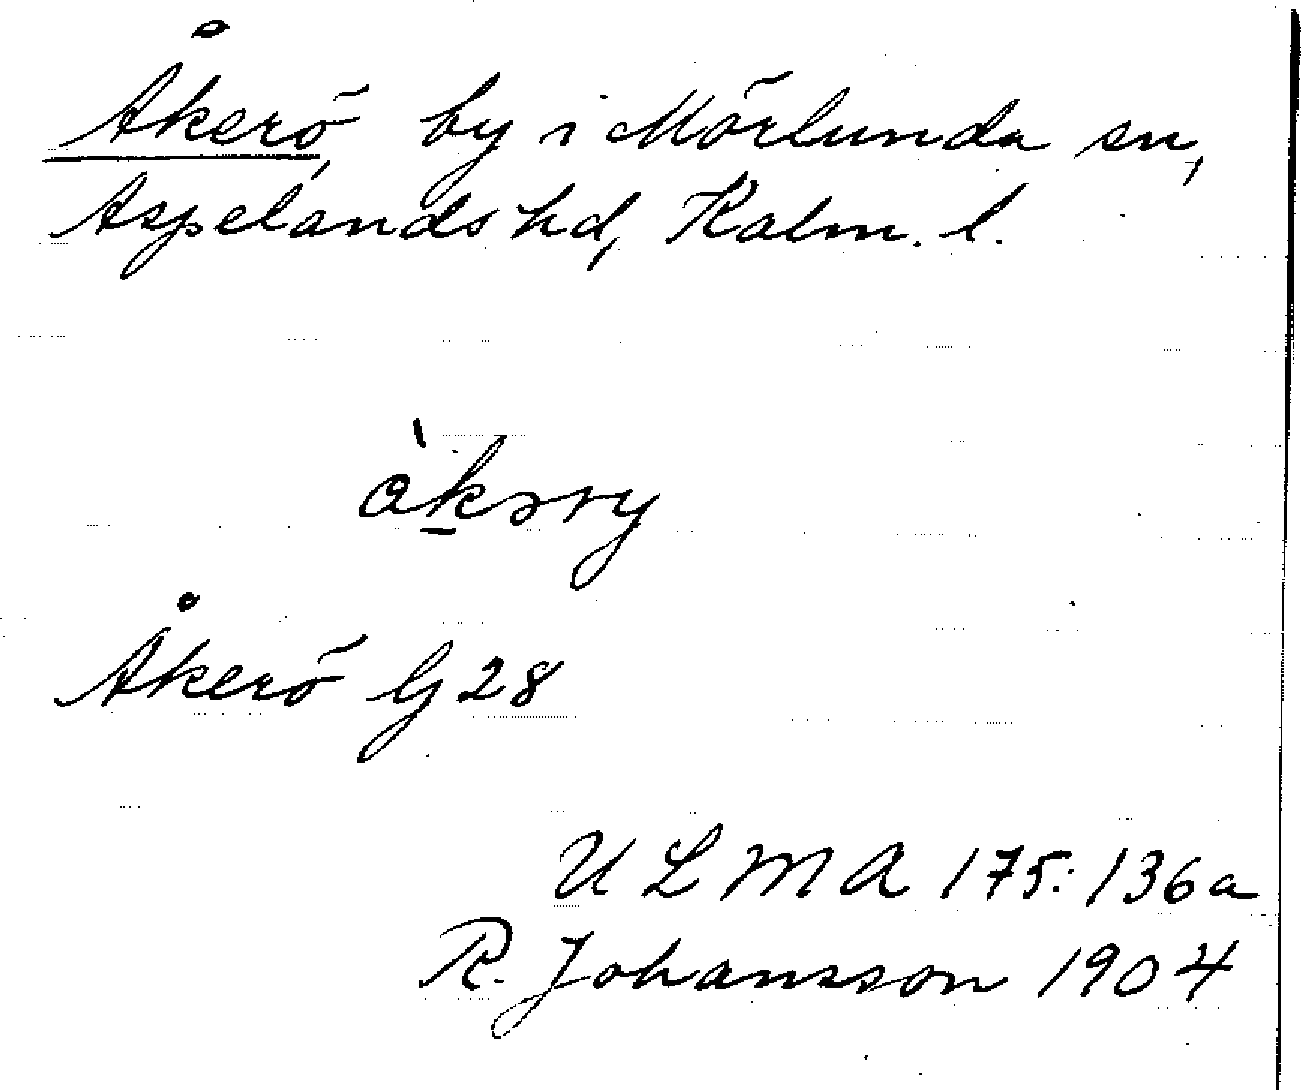 Åkerö, by i Mörlunda sn,
Aspelands hd, Kalm. l.
àkəry
Åkerö G 28
ULMA 175:136a
R. Johansson 1904